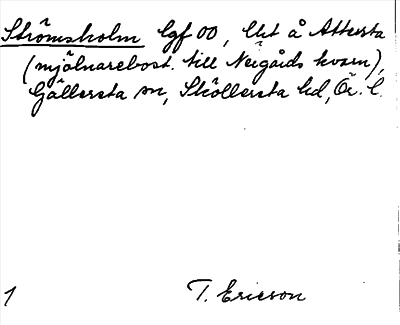 Strömsholm lgf 00, lht å Attersta
(mjölnarebost. till Neigårds kvarn),
Gällersta sn, Sköllersta hd, Ör. l.
1 T. Ericson